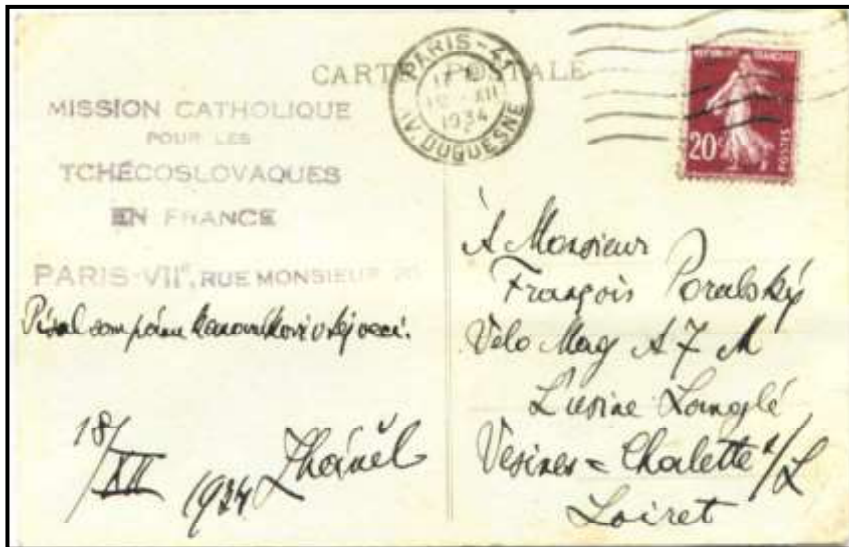 CARTE POSTALE
PARIS-41
XII
1934
AV. DUQUESNE
REPUBLIQUE FRANÇAISE
20c
POSTES
MISSION CATHOLIQUE
POUR LES
TCHÉCOSLOVAQUES
EN FRANCE
PARIS-VIIe, RUE MONSIEUR
Písal som pánu kanovníkovi v tej veci.
18/XII 1934
À Monsieur
François Poralský
Velo Mag A 7 M
L'usine Langlé
Vesines = Chalette s/L
Loiret